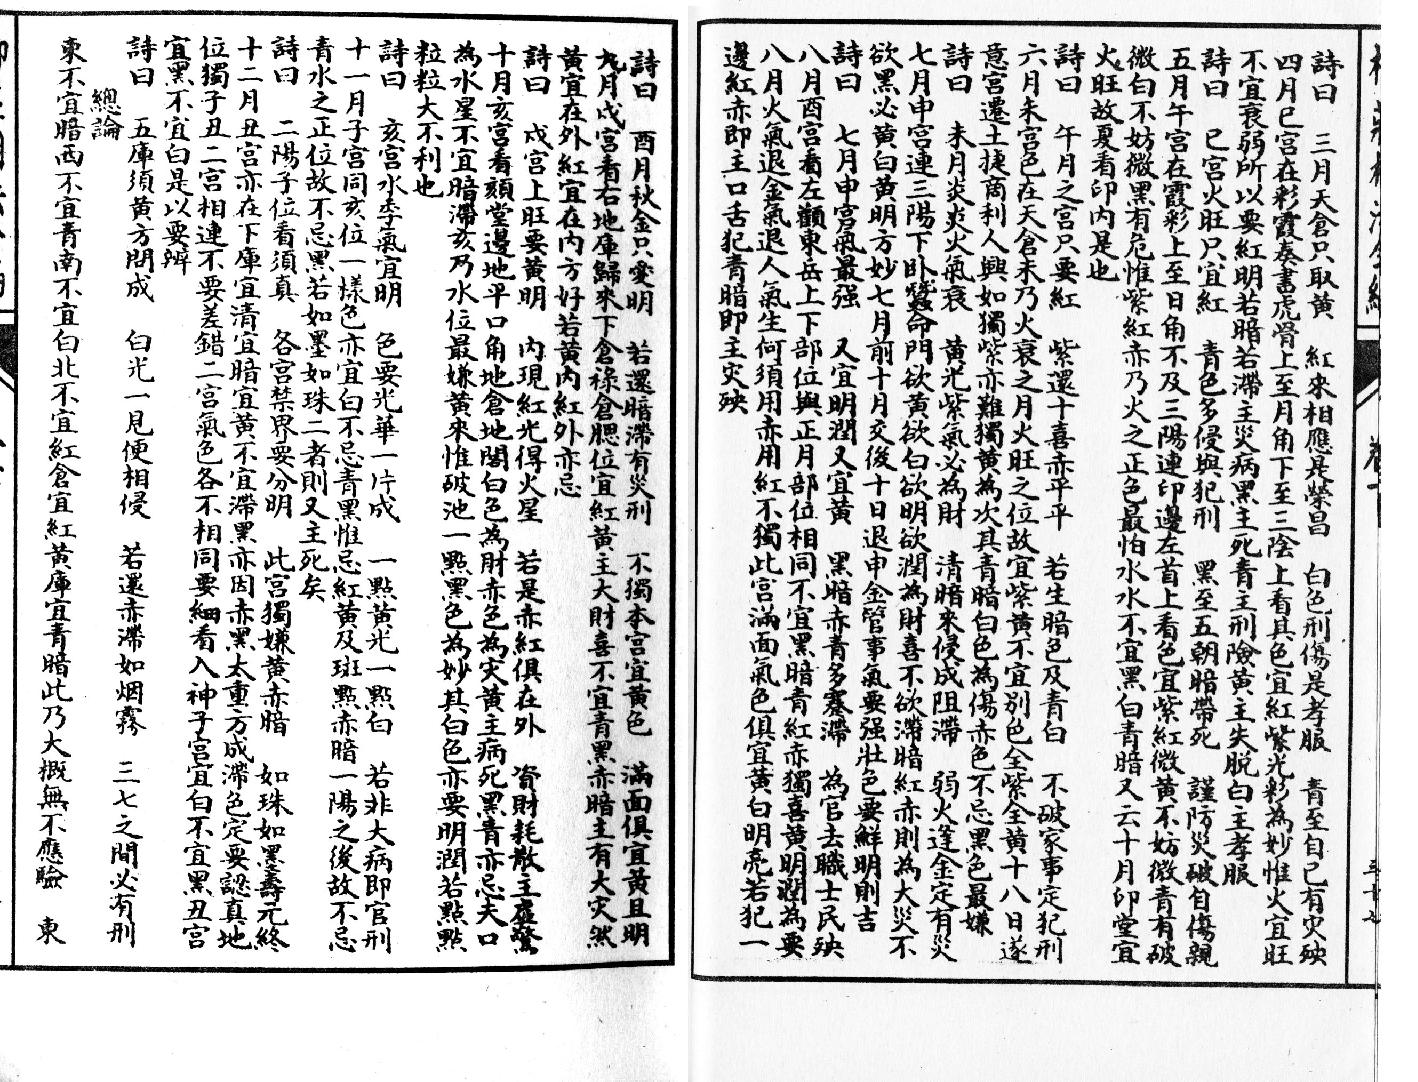 詩曰　三月天倉只取黃　紅來相應是榮昌　白色刑傷是孝服　青至自己有灾殃
四月巳宮在彩霞奏書虎骨上至月角下至三陰上看其色宜紅紫光彩為妙惟火宜旺
不宜衰弱所以要紅明若暗若滯主災病黑主死青主刑險黃主失脫白主孝服
詩曰　巳宮火旺只宜紅　青色多侵與犯刑　黑至五朝暗帶死　謹防災破自傷親
五月午宮在霞彩上至日角不及三陽連印邊左首上看色宜紫紅微黃不妨微青有破
微白不妨微黑有危惟紫紅赤乃火之正色最怕水水不宜黑白青暗又云十月印堂宜
火旺故夏看印內是也
詩曰　午月之宮只要紅　紫還十喜赤平平　若生暗色及青白　不破家事定犯刑
六月未宮色在天倉未乃火衰之月火旺之位故宜紫黃不宜別色全紫全黃十八日遂
意宮遷土捷商利人興如獨紫亦難獨黃為次其青暗白色為傷赤色不忌黑色最嫌
詩曰　未月炎炎火氣衰　黃光紫氣必為財　清暗來侵成阻滯　弱火逢金定有災
七月申宮連三陽下卧蠶命門欲黃欲白欲明欲潤為財喜不欲滯暗紅赤則為大災不
欲黑必黃白黃明方妙七月前十月交後十日退申金管事氣要强壯色要鮮明則吉
詩曰　七月申宮氣最强　又宜明潤又宜黃　黑暗赤青多蹇滯　為官去職士民殃
八月酉宮看左顴東岳上下部位與正月部位相同不宜黑暗青紅赤獨喜黃明潤為要
八月火氣退金氣退人氣生何須用赤用紅不獨此宮滿面氣色俱宜黃白明亮若犯一
邊紅赤即主口舌犯青暗即主灾殃
詩曰　酉月秋金只愛明　若還暗滯有災刑　不獨本宮宜黃色　滿面俱宜黃且明
九月戊宮看右地庫歸來下倉祿倉腮位宜紅黃主大財喜不宜青黑赤暗主有大灾然
黃宜在外紅宜在內方好若黃內紅外亦忌
詩曰　戍宮上旺要黃明　內現紅光得火星　若是赤紅俱在外　資財耗散主虛驚
十月亥宮看頦堂邊地平口角地倉地閣白色為財赤色為灾黃主病死黑青亦忌夫口
為水星不宜暗滯亥乃水位最嫌黃來惟破池一點黑色為妙其白色亦要明潤若點點
粒粒大不利也
詩曰　亥宮水季氣宜明　色要光華一片成　一點黃光一點白　若非大病即官刑
十一月子宮同亥位一樣色亦宜白不忌青黑惟忌紅黃及斑點赤暗一陽之後故不忌
青水之正位故不忌黑若如墨如珠二者則又主死矣
詩曰　二陽子位看須真　各宮禁界要分明　此宮獨嫌黃赤暗　如珠如墨壽元終
十二月丑宮亦在下庫宜清宜暗宜黃不宜滯黑亦因赤黑太重方成滯色定要認真地
位獨子丑二宮相連不要差錯二宮氣色各不相同要細看入神子宮宜白不宜黑丑宮
宜黑不宜白是以要辨
詩曰　五庫須黃方問成　白光一見便相侵　若還赤滯如烟霧　三七之間必有刑
總論
東不宜暗西不宜青南不宜白北不宜紅倉宜紅黃庫宜青暗此乃大概無不應驗　東